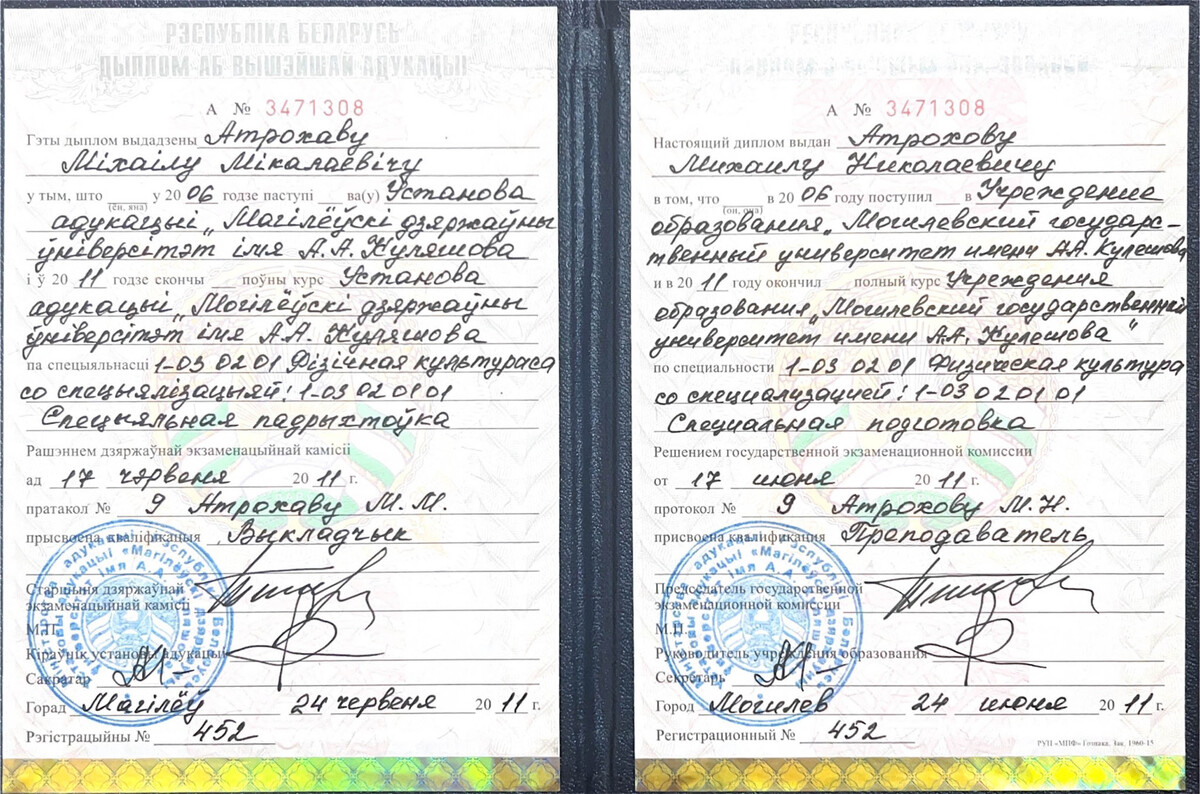 РЭСПУБЛІКА БЕЛАРУСЬ
ДЫПЛОМ АБ ВЫШЭЙШАЙ АДУКАЦЫІ
А № 3471308
Гэты дыплом выдадзены Атрохаву
Міхаілу Мікалаевічу
у тым, што (ён, яна) у 2006 годзе паступі ва(у) Установа
адукацыі „Магілёўскі дзяржаўны
ўніверсітэт імя А.А. Куляшова
і ў 2011 годзе скончы поўны курс Установа
адукацыі „Могілёўскі дзяржаўны
ўніверсітэт імя А.А. Куляшова
па спецыяльнасці 1-03 02 01 Фізічная культураса
со спецыялізацыяй: 1-03 02 01 01
Спецыяльная падрыхтоўка
Рашэннем дзяржаўнай экзаменацыйнай камісіі
ад 17 чэрвеня 2011 г.
пратакол № 9 Атрохаву М.М.
прысвоена кваліфікацыя Выкладчык
Старшыня дзяржаўнай
экзаменацыйнай камісіі
М.П.
Кіраўнік установы адукацыі
Сакратар
Горад Магілёў 24 червеня 2011 г.
Рэгістрацыйны № 452
А № 3471308
Настоящий диплом выдан Атрохову
Михаилу Николаевичу
в том, что (он, она) в 2006 году поступил в Учреждение
образования „Могилевский государс-
твенный университет имени А.А. Кулешова
и в 2011 году окончил полный курс Учреждения
образования „Могилевский государственный
университет имени А.А. Кулешова"
по специальности 1-03 02 01 Физическая культура
со специализацией: 1-03 02 01 01
Специальная подготовка
Решением государственной экзаменационной комиссии
от 17 июня 2011 г.
протокол № 9 Атрохову М.Н.
присвоена квалификация Преподаватель
Председатель государственной
экзаменационной комиссии
М.П.
Руководитель учреждения образования
Секретарь
Город Могилев 24 июня 2011 г.
Регистрационный № 452
РУП «МПФ» Гознака. Зак. 1960-15